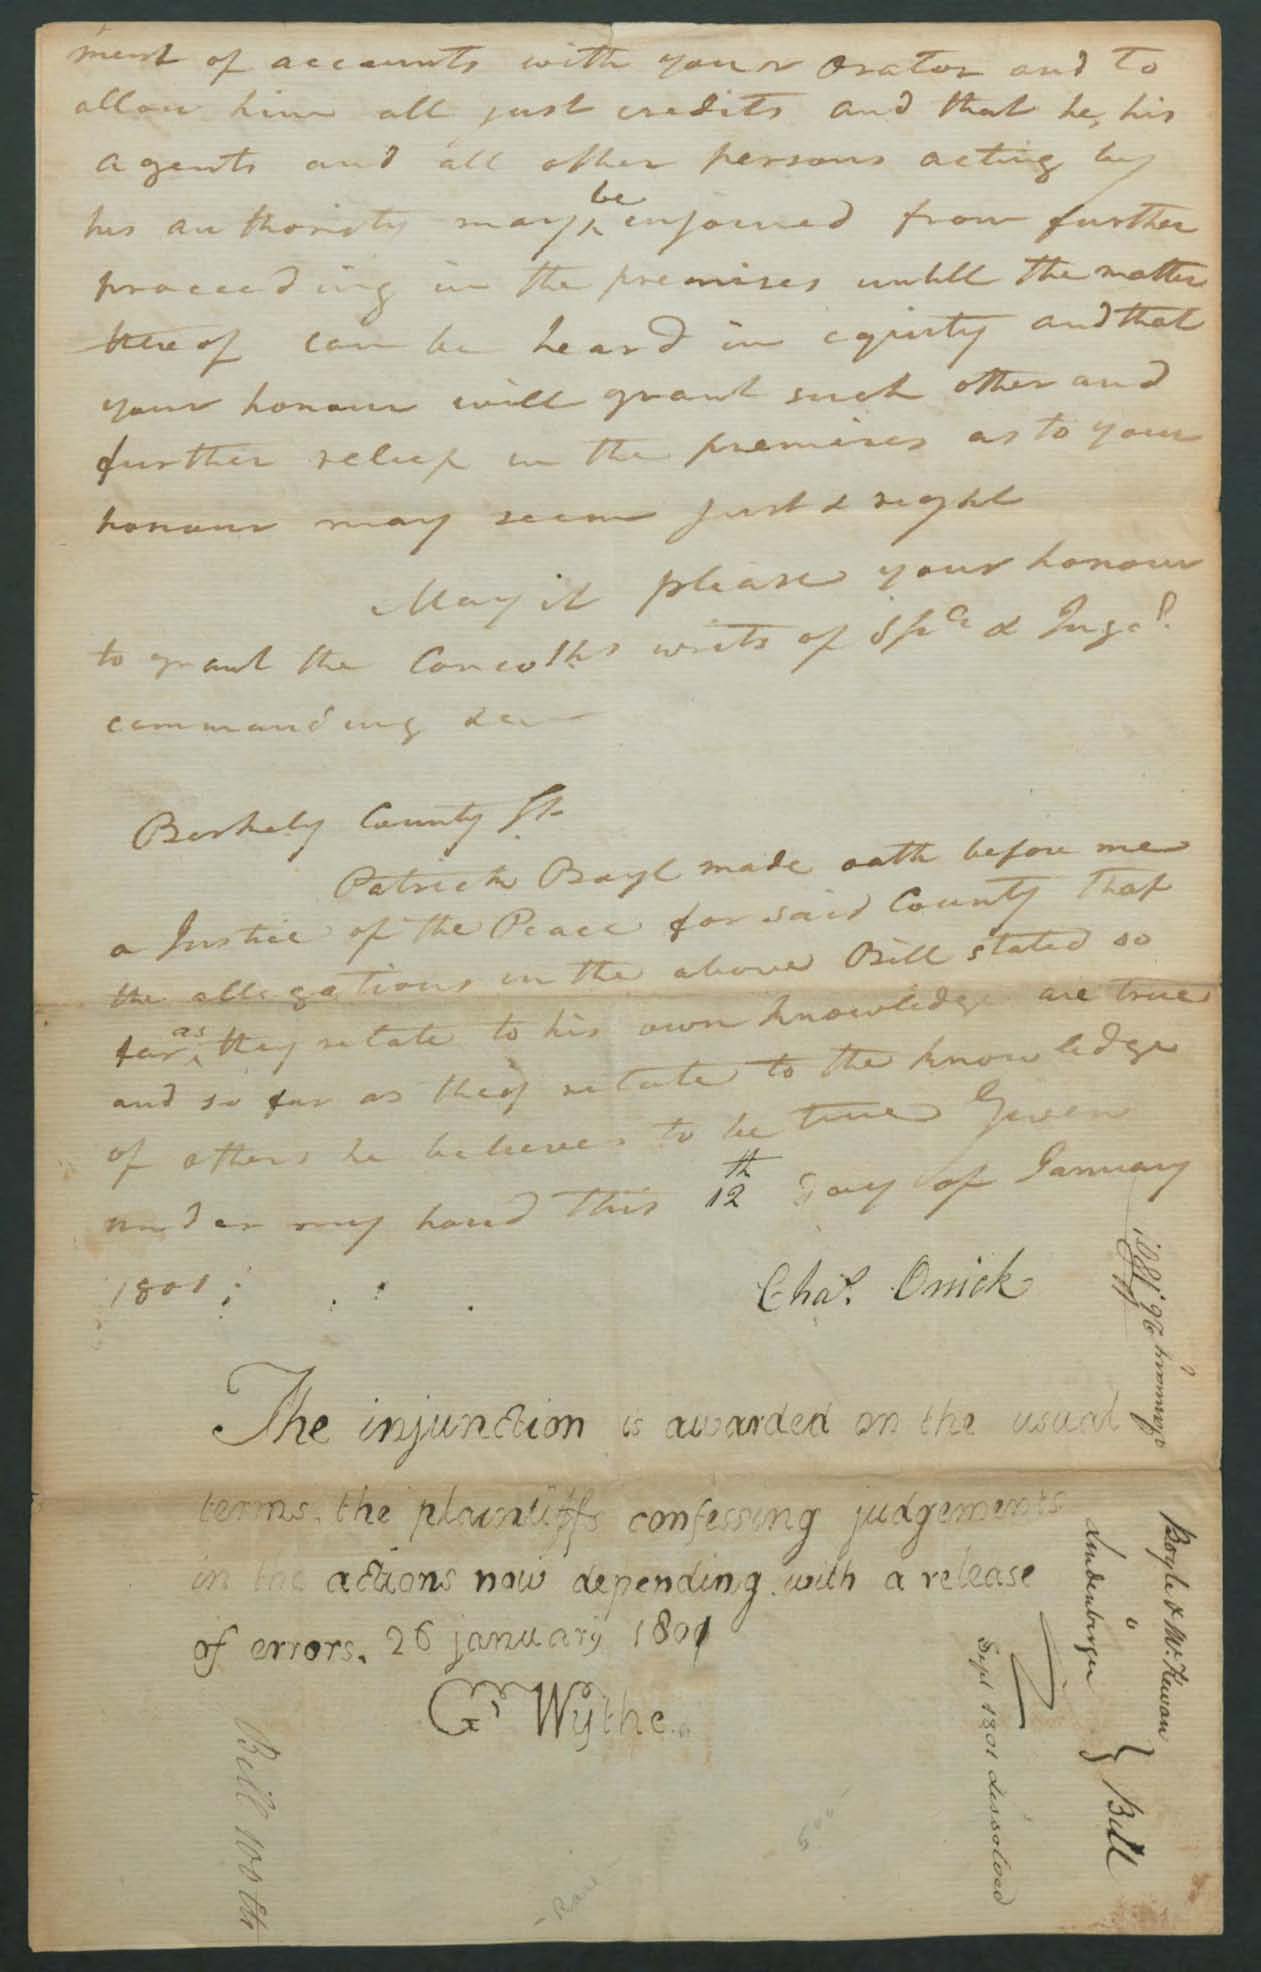 ment of accounts with your orator and to
allow him all just credits and that he, his
agents and all other persons acting by
his authority may ^be enjoined from further
proceeding in the premises untill the matter
thereof can be heard in equity and that
your honour will grant such other and
further relief in the premises as to your
honour may seem just & right
May it please your honour
to grant the Comwlths writs of Spa & Injn.
commanding &c
Berkely County Sst.
Patrick Boyl made oath before me
a Justice of the Peace for said County that
the allegations in the above Bill stated so
far ^as they relate to his own knowledge are true
and so far as they relate to the knowledge
of others he believes to be true Given
under my hand this 12th day of January
1801 :
Chas. Orrick
The injunction is awarded on the usual
terms, the plaintiffs confessing judgements
in the actions now depending with a release
of errors. 26 january 1801
G Wythe.
January 26. 1801.
Boyle & McKewan
v
Lindenberger
} Bill
Sept 1801 dissolved
Bill
Rare
500-